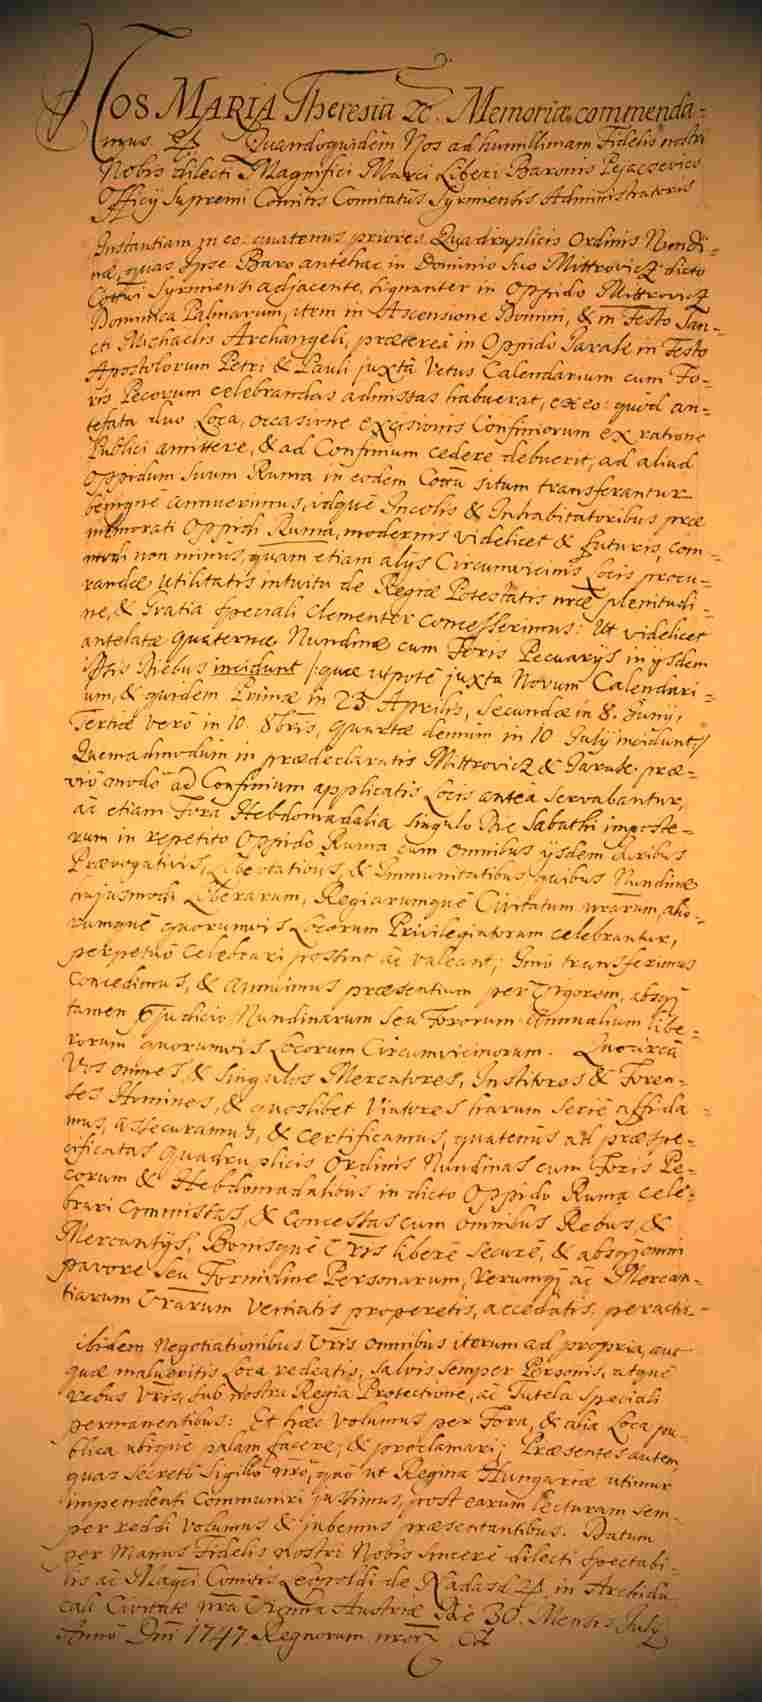 Nos MARIA Theresia &c. Memoriæ commenda-
mus &. Quandoquidem Nos ad humillimam Fidelis nostri
Nobis dilecti Magnifici Marci Liberi Baronis Pejacsevics
Officij Supremi Comitis Comitatûs Syrmiensis Administratoris
Instantiam in eo: quatenus priores Quadruplicis Ordinis Nundi-
næ, quas Ipse Baro antehac in Dominio Suo Mittrovicz dicto
Cottui Syrmiensi adjacente, signanter in Oppido Mittrovicz
Dominica Palmarum, item in Ascensione Domini, & in Festo San-
cti Michaelis Archangeli, præterea in Oppido Jarak in Festo
Apostolorum Petri & Pauli juxtà Vetus Calendarium cum Fo-
ris Pecorum celebrandas admissas habuerat, ex eo: quòd an-
tefata duo Loca, occasione excisionis Confiniorum ex ratione
Publici amittere, & ad Confinium cedere debuerit, ad aliud
Oppidum Suum Ruma in eodem Cottu situm transferantur
benignè annuerimus, idquè Incolis & Inhabitatoribus præ
memorati Oppidi Ruma, modernis videlicet & futuris, com-
modi non minus, quam etiam alijs Circumvicinis Locis procu-
randæ Utilitatis intuitu de Regiæ Potestatis nræ plenitudi-
ne, & Gratia speciali clementer concesserimus: Ut videlicet
antelatæ quaternæ Nundinæ cum Foris Pecuarijs in ijsdem
istis Diebus incidunt /: quæ utpotè juxta Novum Calendari-
um, & quidem Primæ in 23 Aprilis, Secundæ in 8. Junij,
Tertiæ verò in 10. 8bris, quartæ demum in 10 July incidunt:/
Quemadmodùm in prædeclaratis Mittrovicz & Jarak præ-
viô modô ad Confinium applicatis Locis anteà servabantur,
ac etiam Fora Hebdomadalia singulo Die Sabathi imposte-
rum in repetito Oppido Ruma cum omnibus ijsdem Juribus
Prærogativis, Libertatibus, & Immunitatibus quibus Nundinæ
cujusmodi Liberarum, Regiarumquè Civitatum nrarum, alio-
rumquè quorumvis Locorum Privilegiatorum celebrantur,
perpetuò celebrari possint ac valeant; Imò transferimus
concedimus, & annuimus præsentium per Vigorem, absq
tamen Præjudicio Nundinarum seu Fororum Annualium libe-
rorum quorumvis Locorum Circumvicinorum. Quocircà
Vos omnes, & Singulos Mercatores, Institores & Foren-
ses Homines, & quoslibet Viatores harum Seriè affida-
mus, assecuramus, & certificamus, quatenùs ad præspe-
cificatas quadruplicis Ordinis Nundinas cum Foris Pe-
corum & Hebdomadalibus in dicto Oppido Ruma cele-
brari commissas, & concessas cum omnibus Rebus, &
Mercantijs, Bonisquè Vris liberè securè, & absq omni
pavore seu Formidine Personarum, Rerumq ac Mercan-
tiarum Vrarum veniatis properetis, accedatis, peractis-
ibidem Negotiationibus Vris omnibus iterum ad propria, aut
quæ malueritis Loca redeatis, salvis semper Personis, atquè
rebus Vris, sub nostra Regia Protectione, ac Tutela speciali
permanentibus: Et hæc volumus per Fora, & alia Loca pu-
blica ubique palam facere, & proclamari; Præsentes autem
quas Secretô Sigillô nrô, quô ut Regina Hungariæ utimur
impendenti communiri jussimus, post earum Lecturam sem-
per reddi volumus & jubemus præsentantibus. Datum
per Manus Fidelis Nostri Nobis sincerè dilecti Spectabi-
lis ac Magci Comitis Leopoldi de Nadasd &. in Archidu-
cali Civitate nra Vienna Austriæ Die 30. Mensis July
Annô Dni 1747 Regnorum nror &